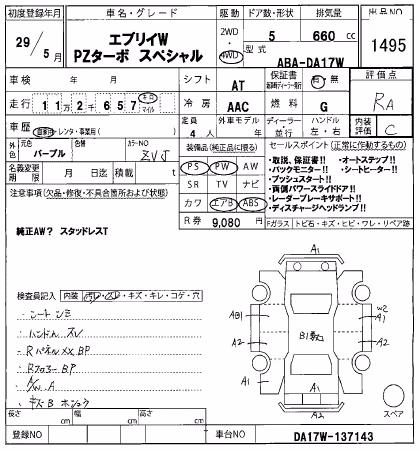 初度登録年月 車名・グレード 駆動 ドア数・形状 排気量 出品NO
29/5月 エブリイW PZターボ スペシャル 2WD・4WD 5 660cc 1495
型式 ABA-DA17W
車検 年 月 シフト AT 保証書 有・無 評価点
走行 112,657 キロ マイル 冷房 AAC 燃料 G RA
車歴 自家用・レンタ・事業用( ) 定員 4人 外車モデル 年 ディーラー・並行 ハンドル 左・右 内装評価 C
外色 元色 パープル 色替 カラーNO ZVJ
装備品(純正品に限る) セールスポイント(正常に作動するもの)
名義変更期限 月 日迄 積載 t
PS PW AW
SR TV ナビ
カワ エアB ABS
R券 9,080円
・取説、保証書!! ・オートステップ!!
・バックモニター!! ・シートヒーター!!
・プッシュスタート!!
・両側パワースライドドア!!
・レーダーブレーキサポート!!
・ディスチャージヘッドランプ!!
注意事項(欠品・修復・不具合箇所および状態)
Fガラス トビ石・キズ・ヒビ・ワレ・リペア跡
純正AW? スタッドレスT
検査員記入 内装 汚レ・スレ・キズ・キレ・コゲ・穴
・シートシミ
・ハンドルスレ
・RパネルXX BP
・Rフロアー BP
・A/W A
・キズB ホシュウ
A1
A1
W2
A1
A2
A2
A1
A2
スペア
長さ cm 幅 cm 高さ cm
登録NO 車台NO DA17W-137143